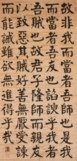 故非我而當者吾師也是我
而當者吾友也諂諛我者
吾賊也故君子隆師而親友
以致惡其賊好善無厭受諫
而能誡雖欲無進得乎哉